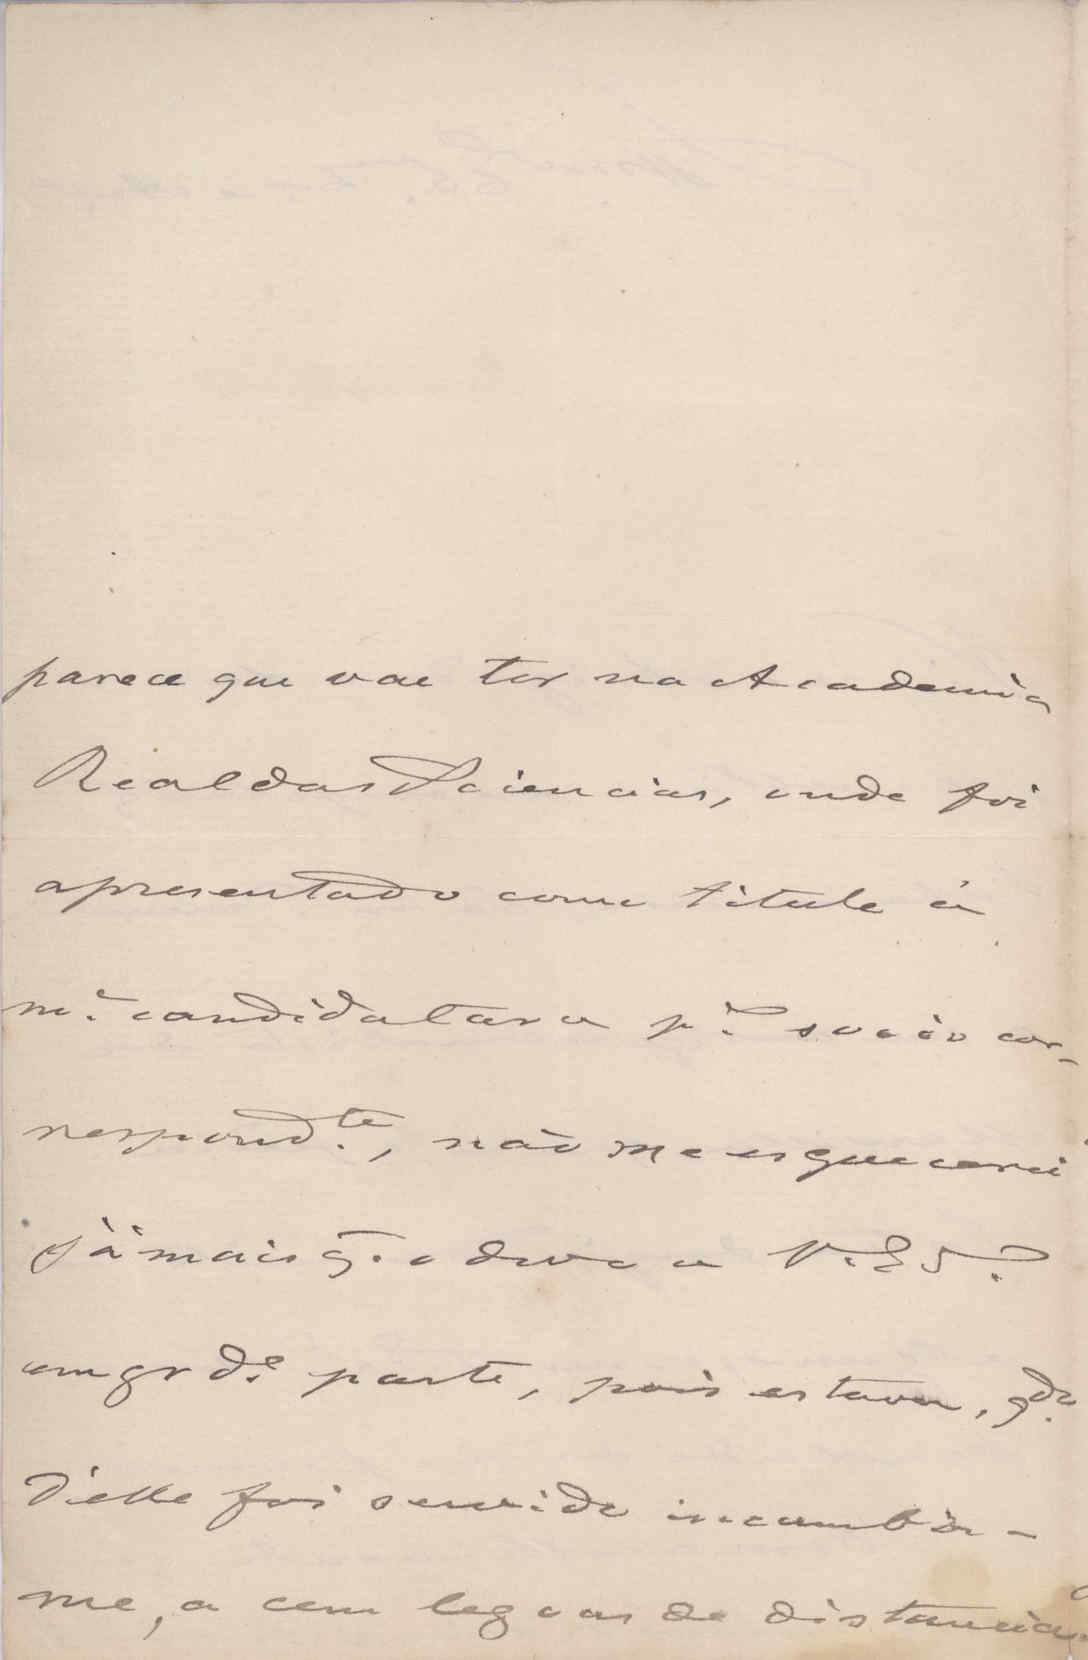 parece que vae ter na Academia
Real das Sciencias, onde foi
apresentado como titulo á
m.ª candidatura p.ª socio cor-
respond.te, não me esquecerei
jámais q. o devo a V. Ex.ª
em gr.de parte, pois estava, q.do
d'elle foi servido incumbir-
me, a cem legoas de distancia